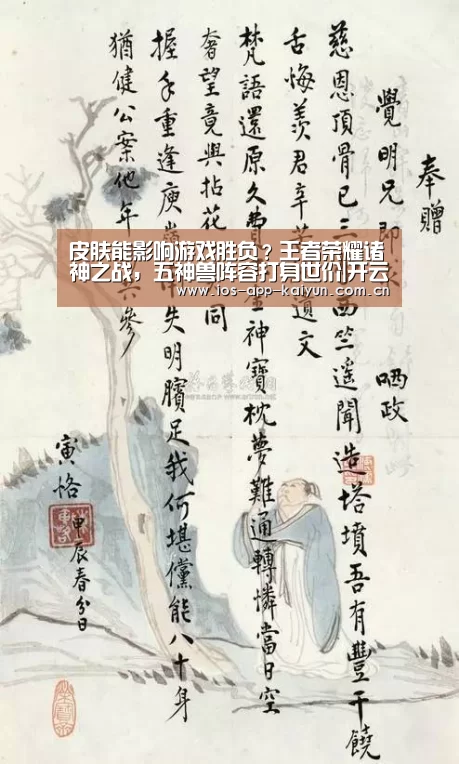 奉贈
覺明兄即 哂政
慈恩頂骨已三 西竺遥聞造塔墳吾有豐干饒
舌悔羨君辛 遺文
梵語還原久費 金神寶枕夢難通轉憐當日空
奢望竟與拈花 同
握手重逢庚 失明臏足我何堪儻能八十身
猶健公案他年 共參
寅恪
甲辰春分日
皮肤能影响游戏胜负？王者荣耀诸
神之战，五神兽阵容打身世们|开云
www.ios-app-kaiyun.com.cn